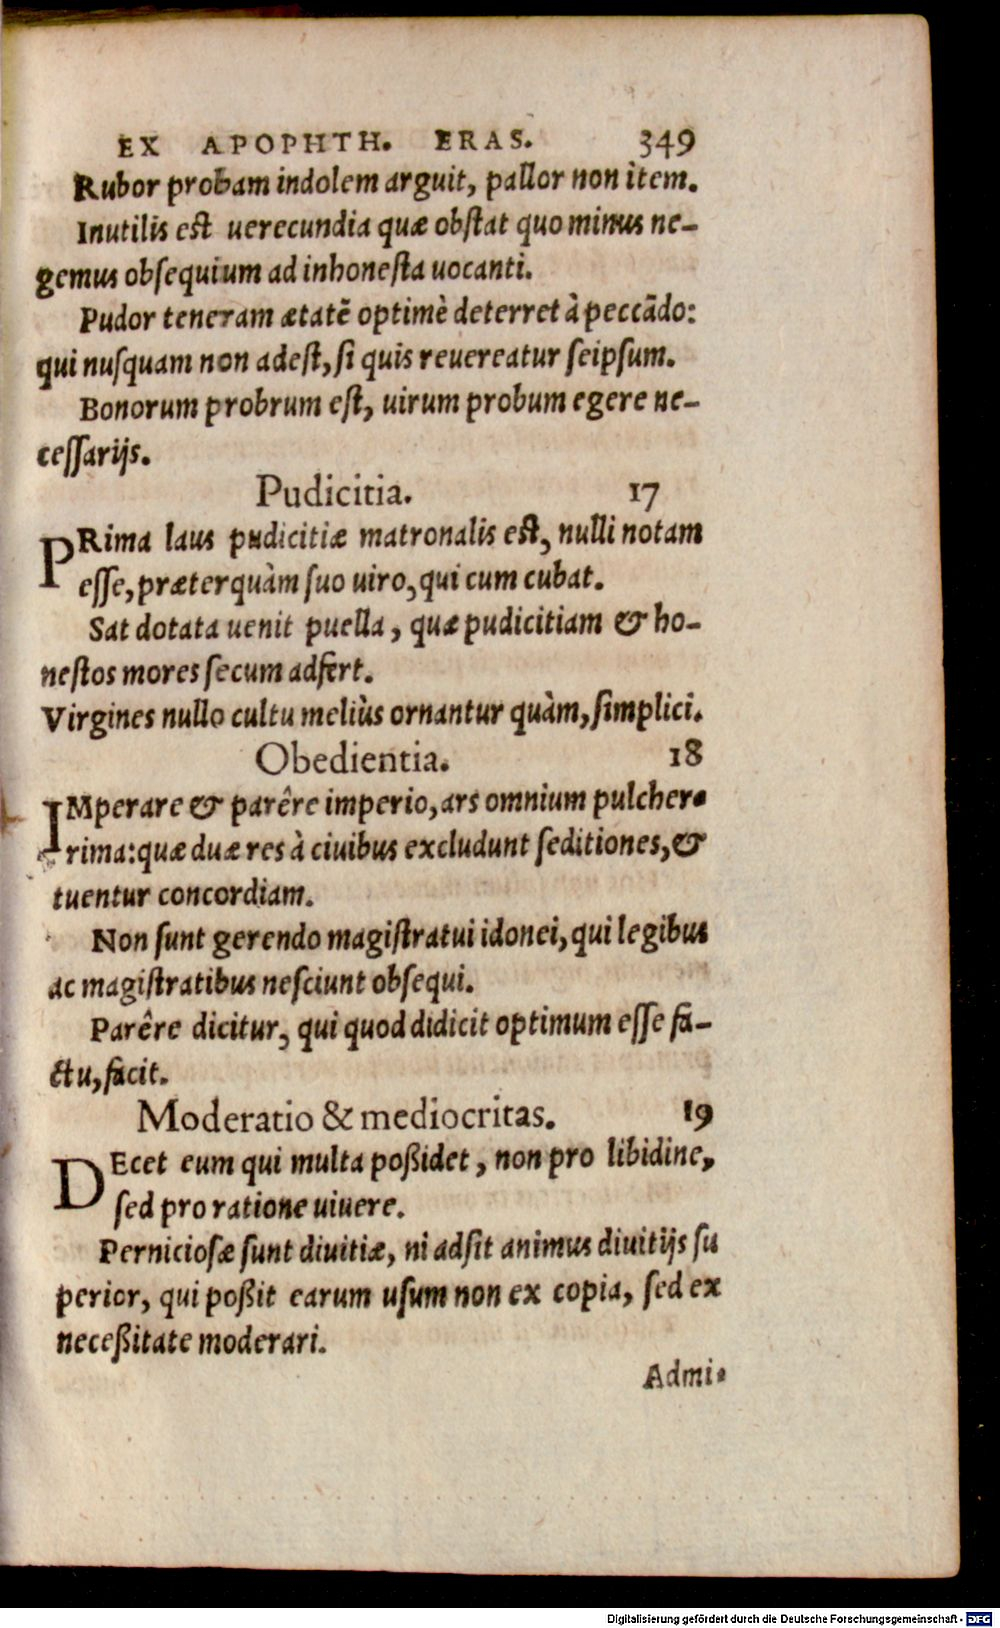 EX APOPHTH. ERAS. 349
Rubor probam indolem arguit, pallor non item.
Inutilis est uerecundia quæ obstat quo minus ne-
gemus obsequium ad inhonesta uocanti.
Pudor teneram ætatē optimè deterret à peccādo:
qui nusquam non adest, si quis reuereatur seipsum.
Bonorum probrum est, uirum probum egere ne-
cessarijs.
Pudicitia. 17
PRima laus pudicitiæ matronalis est, nulli notam
esse, præterquàm suo uiro, qui cum cubat.
Sat dotata uenit puella, quæ pudicitiam & ho-
nestos mores secum adfert.
Virgines nullo cultu meliùs ornantur quàm, simplici.
Obedientia. 18
IMperare & parêre imperio, ars omnium pulcher-
rima: quæ duæ res à ciuibus excludunt seditiones, &
tuentur concordiam.
Non sunt gerendo magistratui idonei, qui legibus
ac magistratibus nesciunt obsequi.
Parêre dicitur, qui quod didicit optimum esse fa-
ctu, facit.
Moderatio & mediocritas. 19
DEcet eum qui multa poßidet, non pro libidine,
sed pro ratione uiuere.
Perniciosæ sunt diuitiæ, ni adsit animus diuitijs su
perior, qui poßit earum usum non ex copia, sed ex
neceßitate moderari.
Admi-
Digitalisierung gefördert durch die Deutsche Forschungsgemeinschaft - DFG